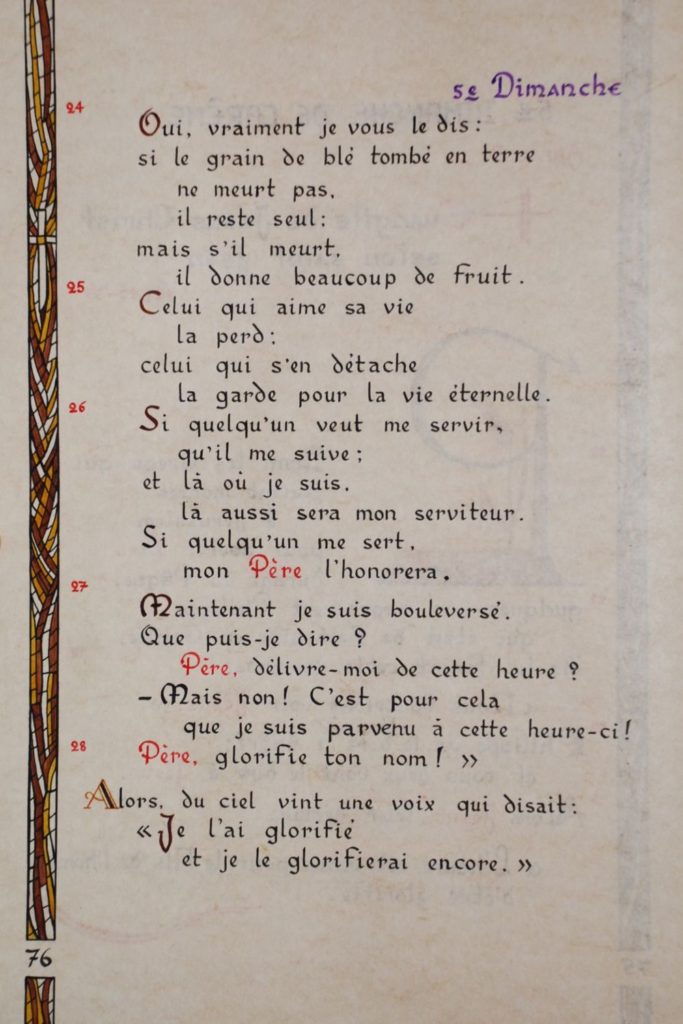 5e Dimanche
24
Oui, vraiment je vous le dis :
si le grain de blé tombé en terre
ne meurt pas,
il reste seul :
mais s'il meurt,
il donne beaucoup de fruit .
25
Celui qui aime sa vie
la perd ;
celui qui s'en détache
la garde pour la vie éternelle .
26
Si quelqu'un veut me servir,
qu'il me suive ;
et là où je suis,
là aussi sera mon serviteur .
Si quelqu'un me sert,
mon Père l'honorera .
27
Maintenant je suis bouleversé .
Que puis-je dire ?
Père, délivre-moi de cette heure ?
– Mais non ! C'est pour cela
que je suis parvenu à cette heure-ci !
28
Père, glorifie ton nom ! »
Alors, du ciel vint une voix qui disait :
« Je l'ai glorifié
et je le glorifierai encore . »
76